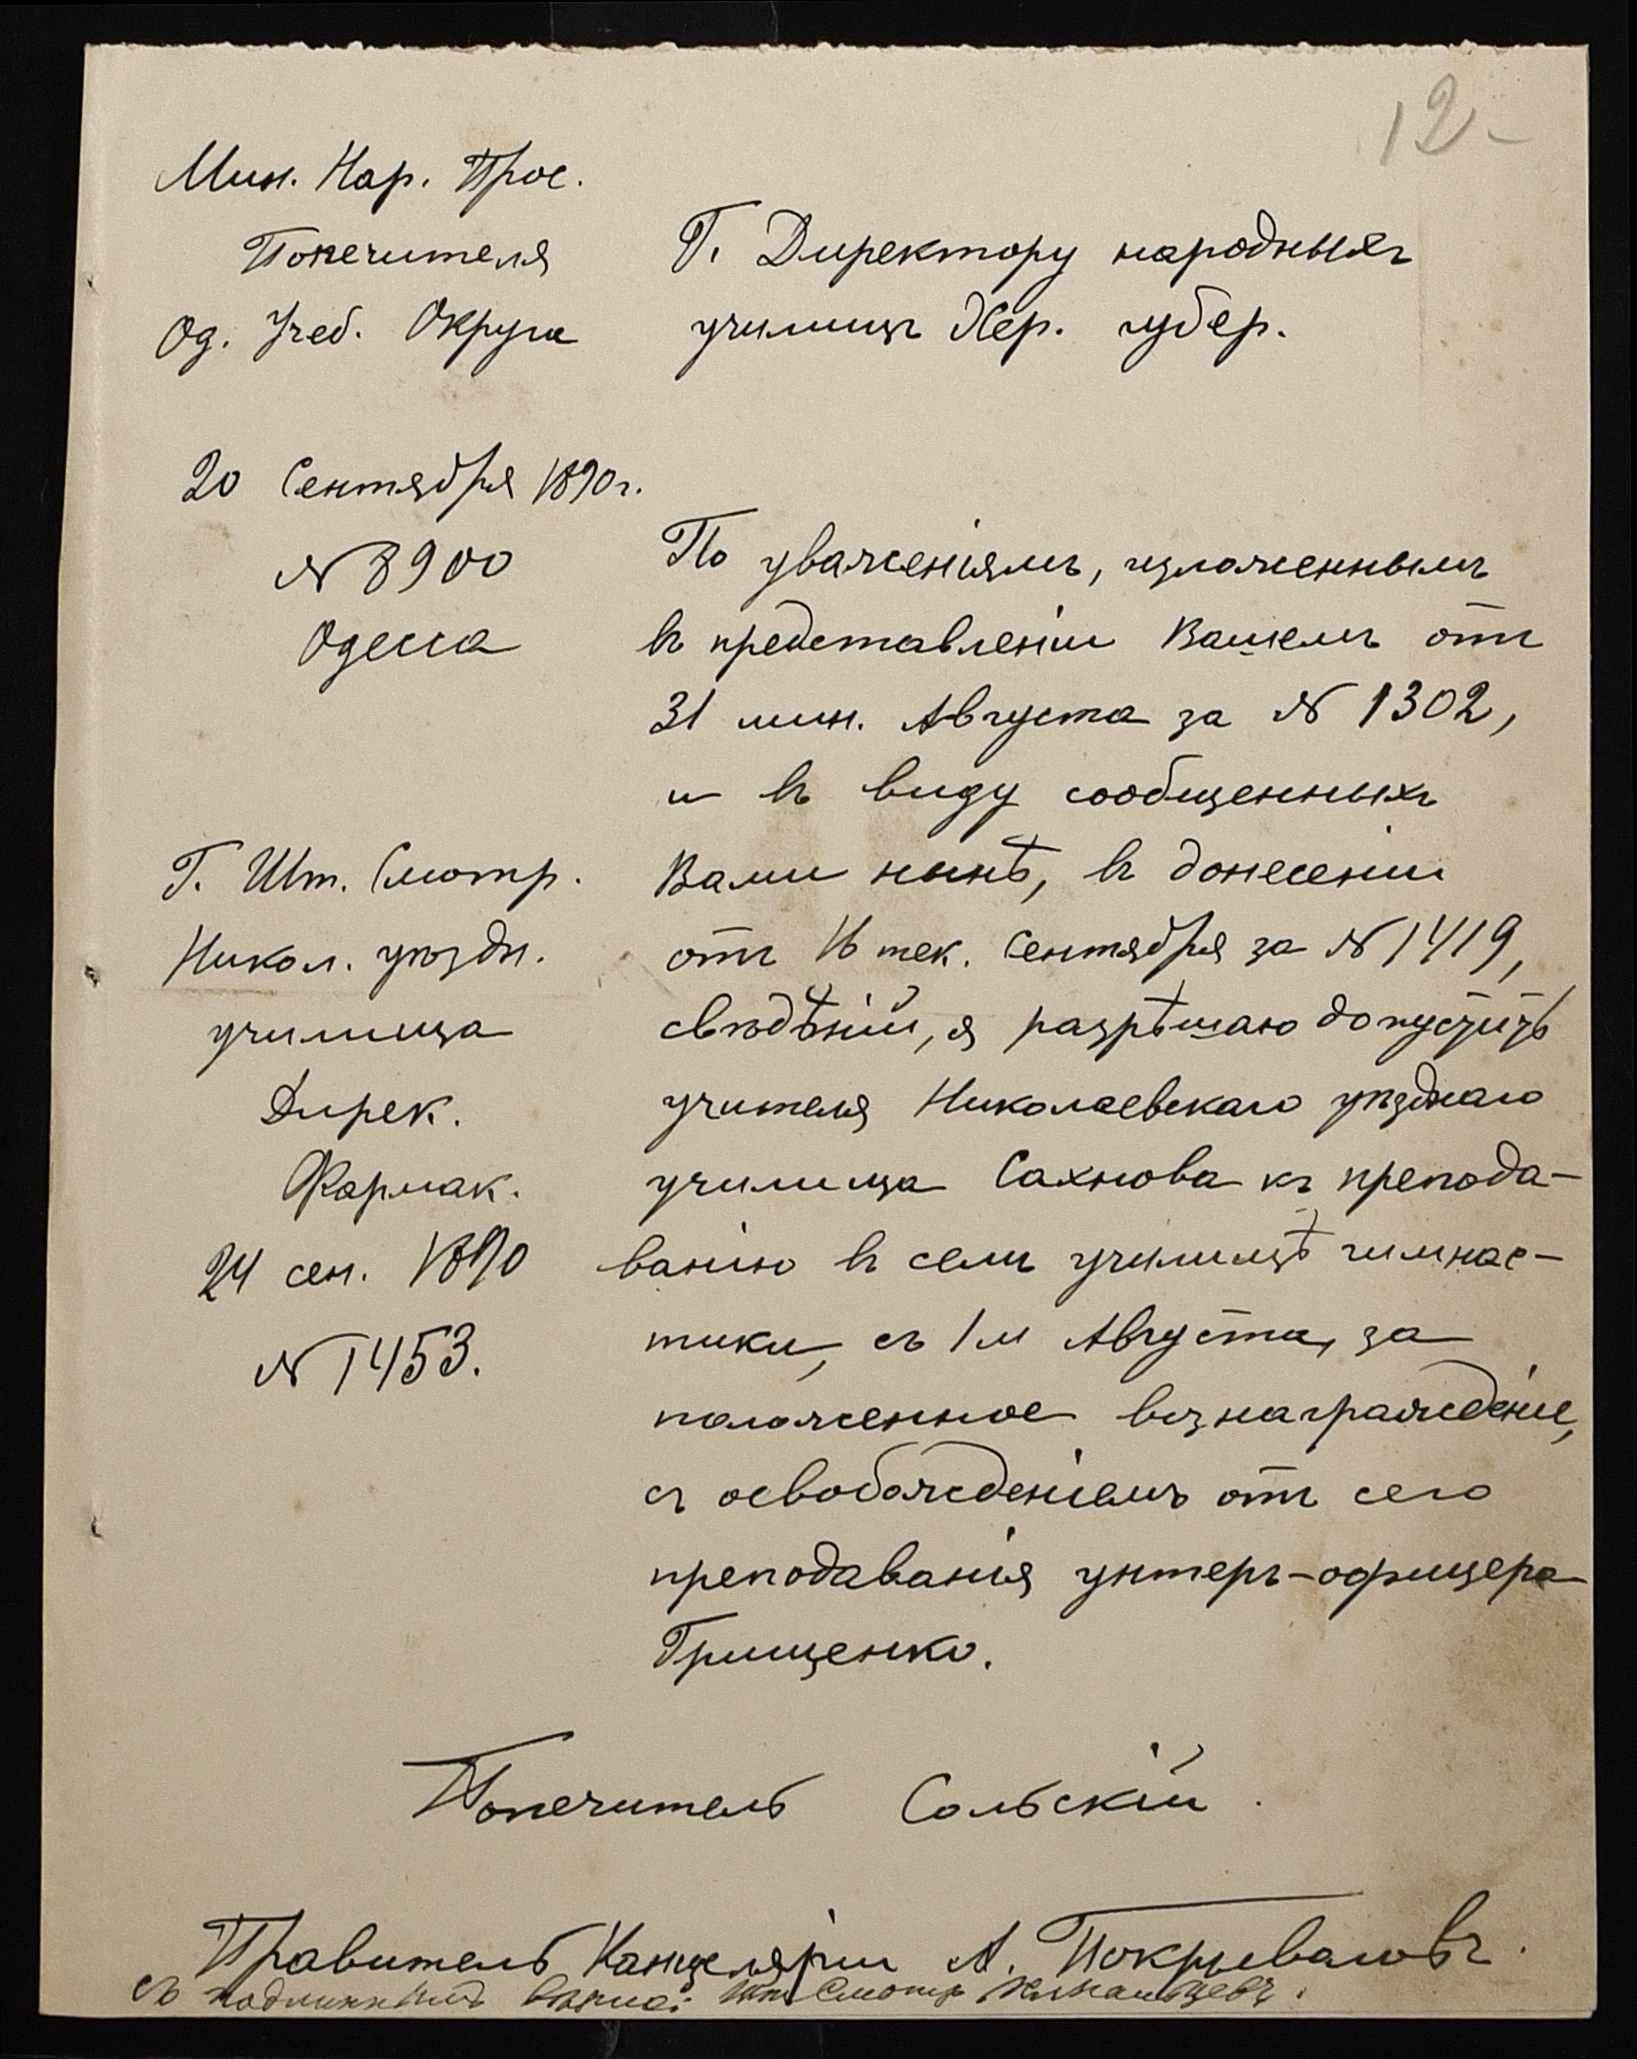 12
Мин. Нар. Прос.
Попечителя
Од. Учеб. Округа
20 Сентября 1890 г.
№ 8900
Одесса
Г. Шт. Смотр.
Никол. уѣздн.
училища
Дирек.
Фармак.
24 сен. 1890
№ 1453.
Г. Директору народныхъ
училищъ Хер. губер.
По уваженіямъ, изложеннымъ
въ представленіи Вашемъ отъ
31 мин. Августа за № 1302,
и въ виду сообщенныхъ
Вами нынѣ, въ донесеніи
отъ 16 тек. Сентября за № 1419,
свѣдѣній, я разрѣшаю допустить
учителя Николаевскаго уѣзднаго
училища Сахнова къ препода-
ванію въ семъ училищѣ гимнас-
тики, съ 1 м Августа, за
положенное вознагражденіе,
съ освобожденіемъ отъ сего
преподаванія унтеръ-офицера
Грищенко.
Попечитель Сольскій.
Правитель Канцеляріи А. Покрываловъ.
Съ подлиннымъ вѣрно: Шт. Смотр.